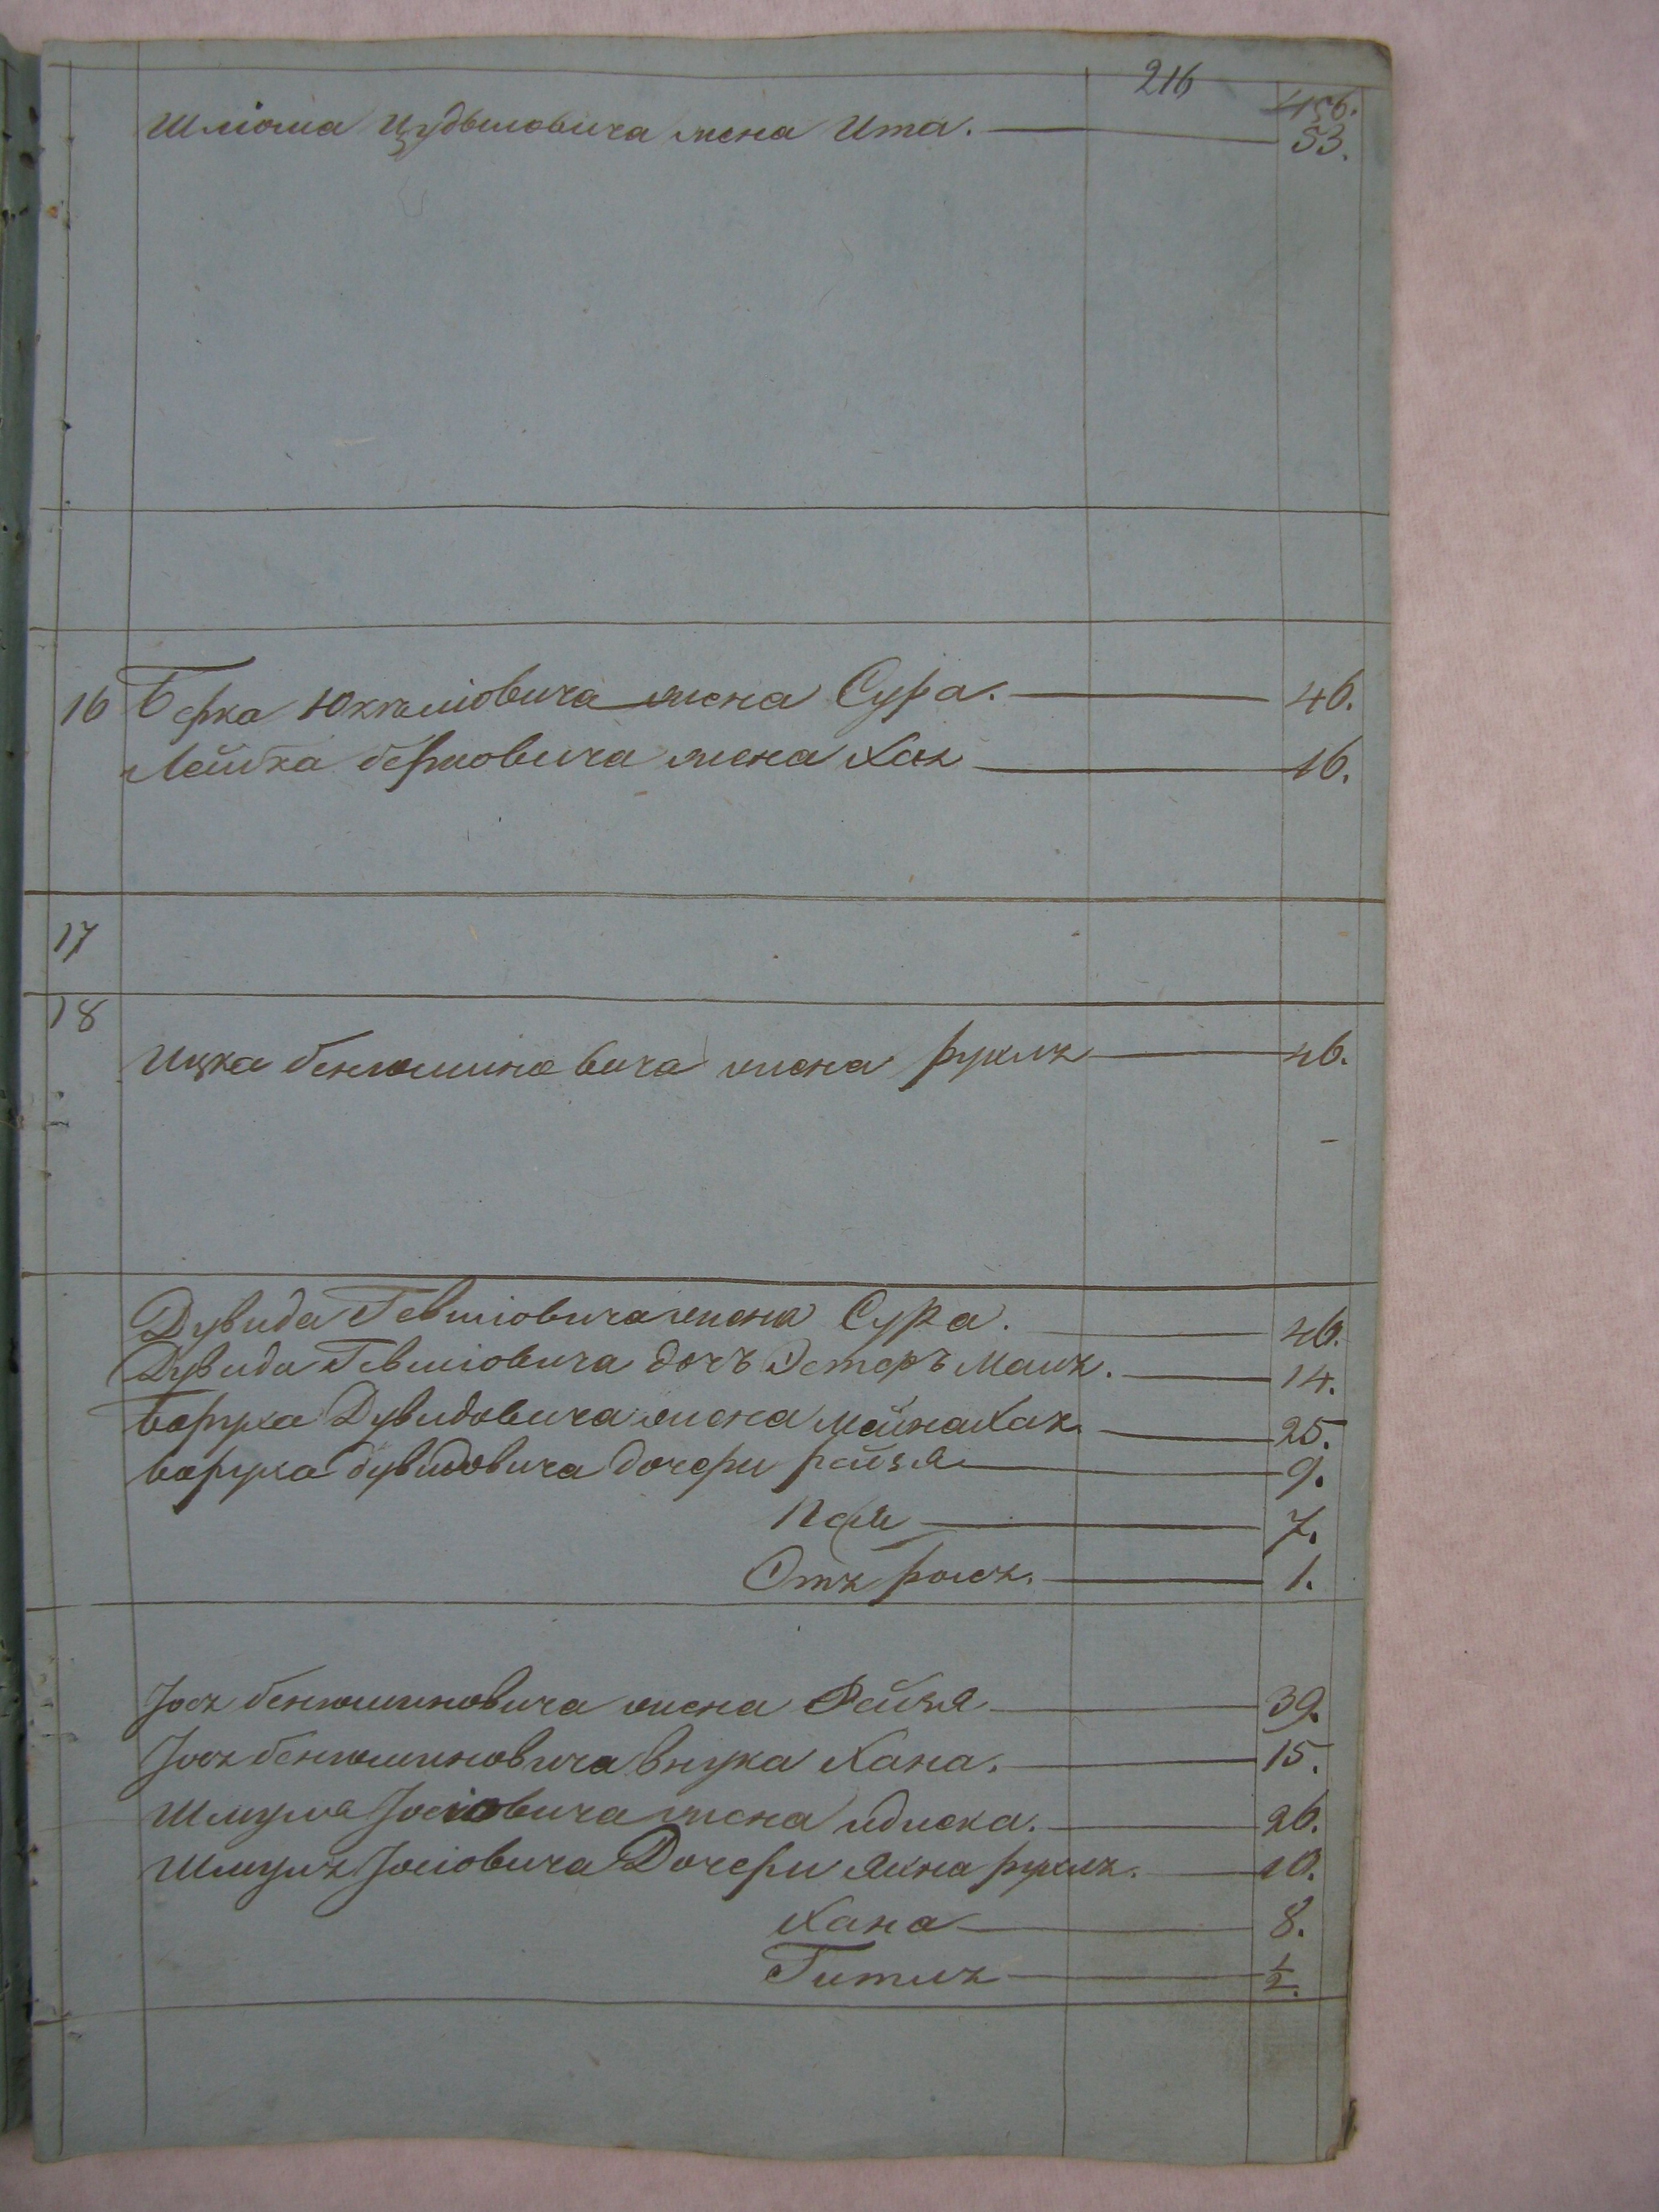 216
456.
Шліома Цудыковича жена Ита. 53.
16 Берка Юкталіовича жена Сура. 46.
Лейбка берковича жена Хая 16.
17
18
Ицка бенюминовича жена рухля 46.
Дувида Гевшіовича жена Сура. 46.
Дувида Гевшіовича дочъ Эстеръ Маля. 14.
боруха Дувидовича жена Мейнахая 25.
боруха дувидовича дочери рейзя 9.
Песя 7.
Этя рося. 1.
Іося бенюминовича жена Рейзя 39.
Іося бенюминовича внука Хана. 15.
Шмуля Іосіовича жена идиска. 26.
Шмуля Іосіовича Дочери Яхна рухля. 10.
Хана 8.
Гитля 1/2.